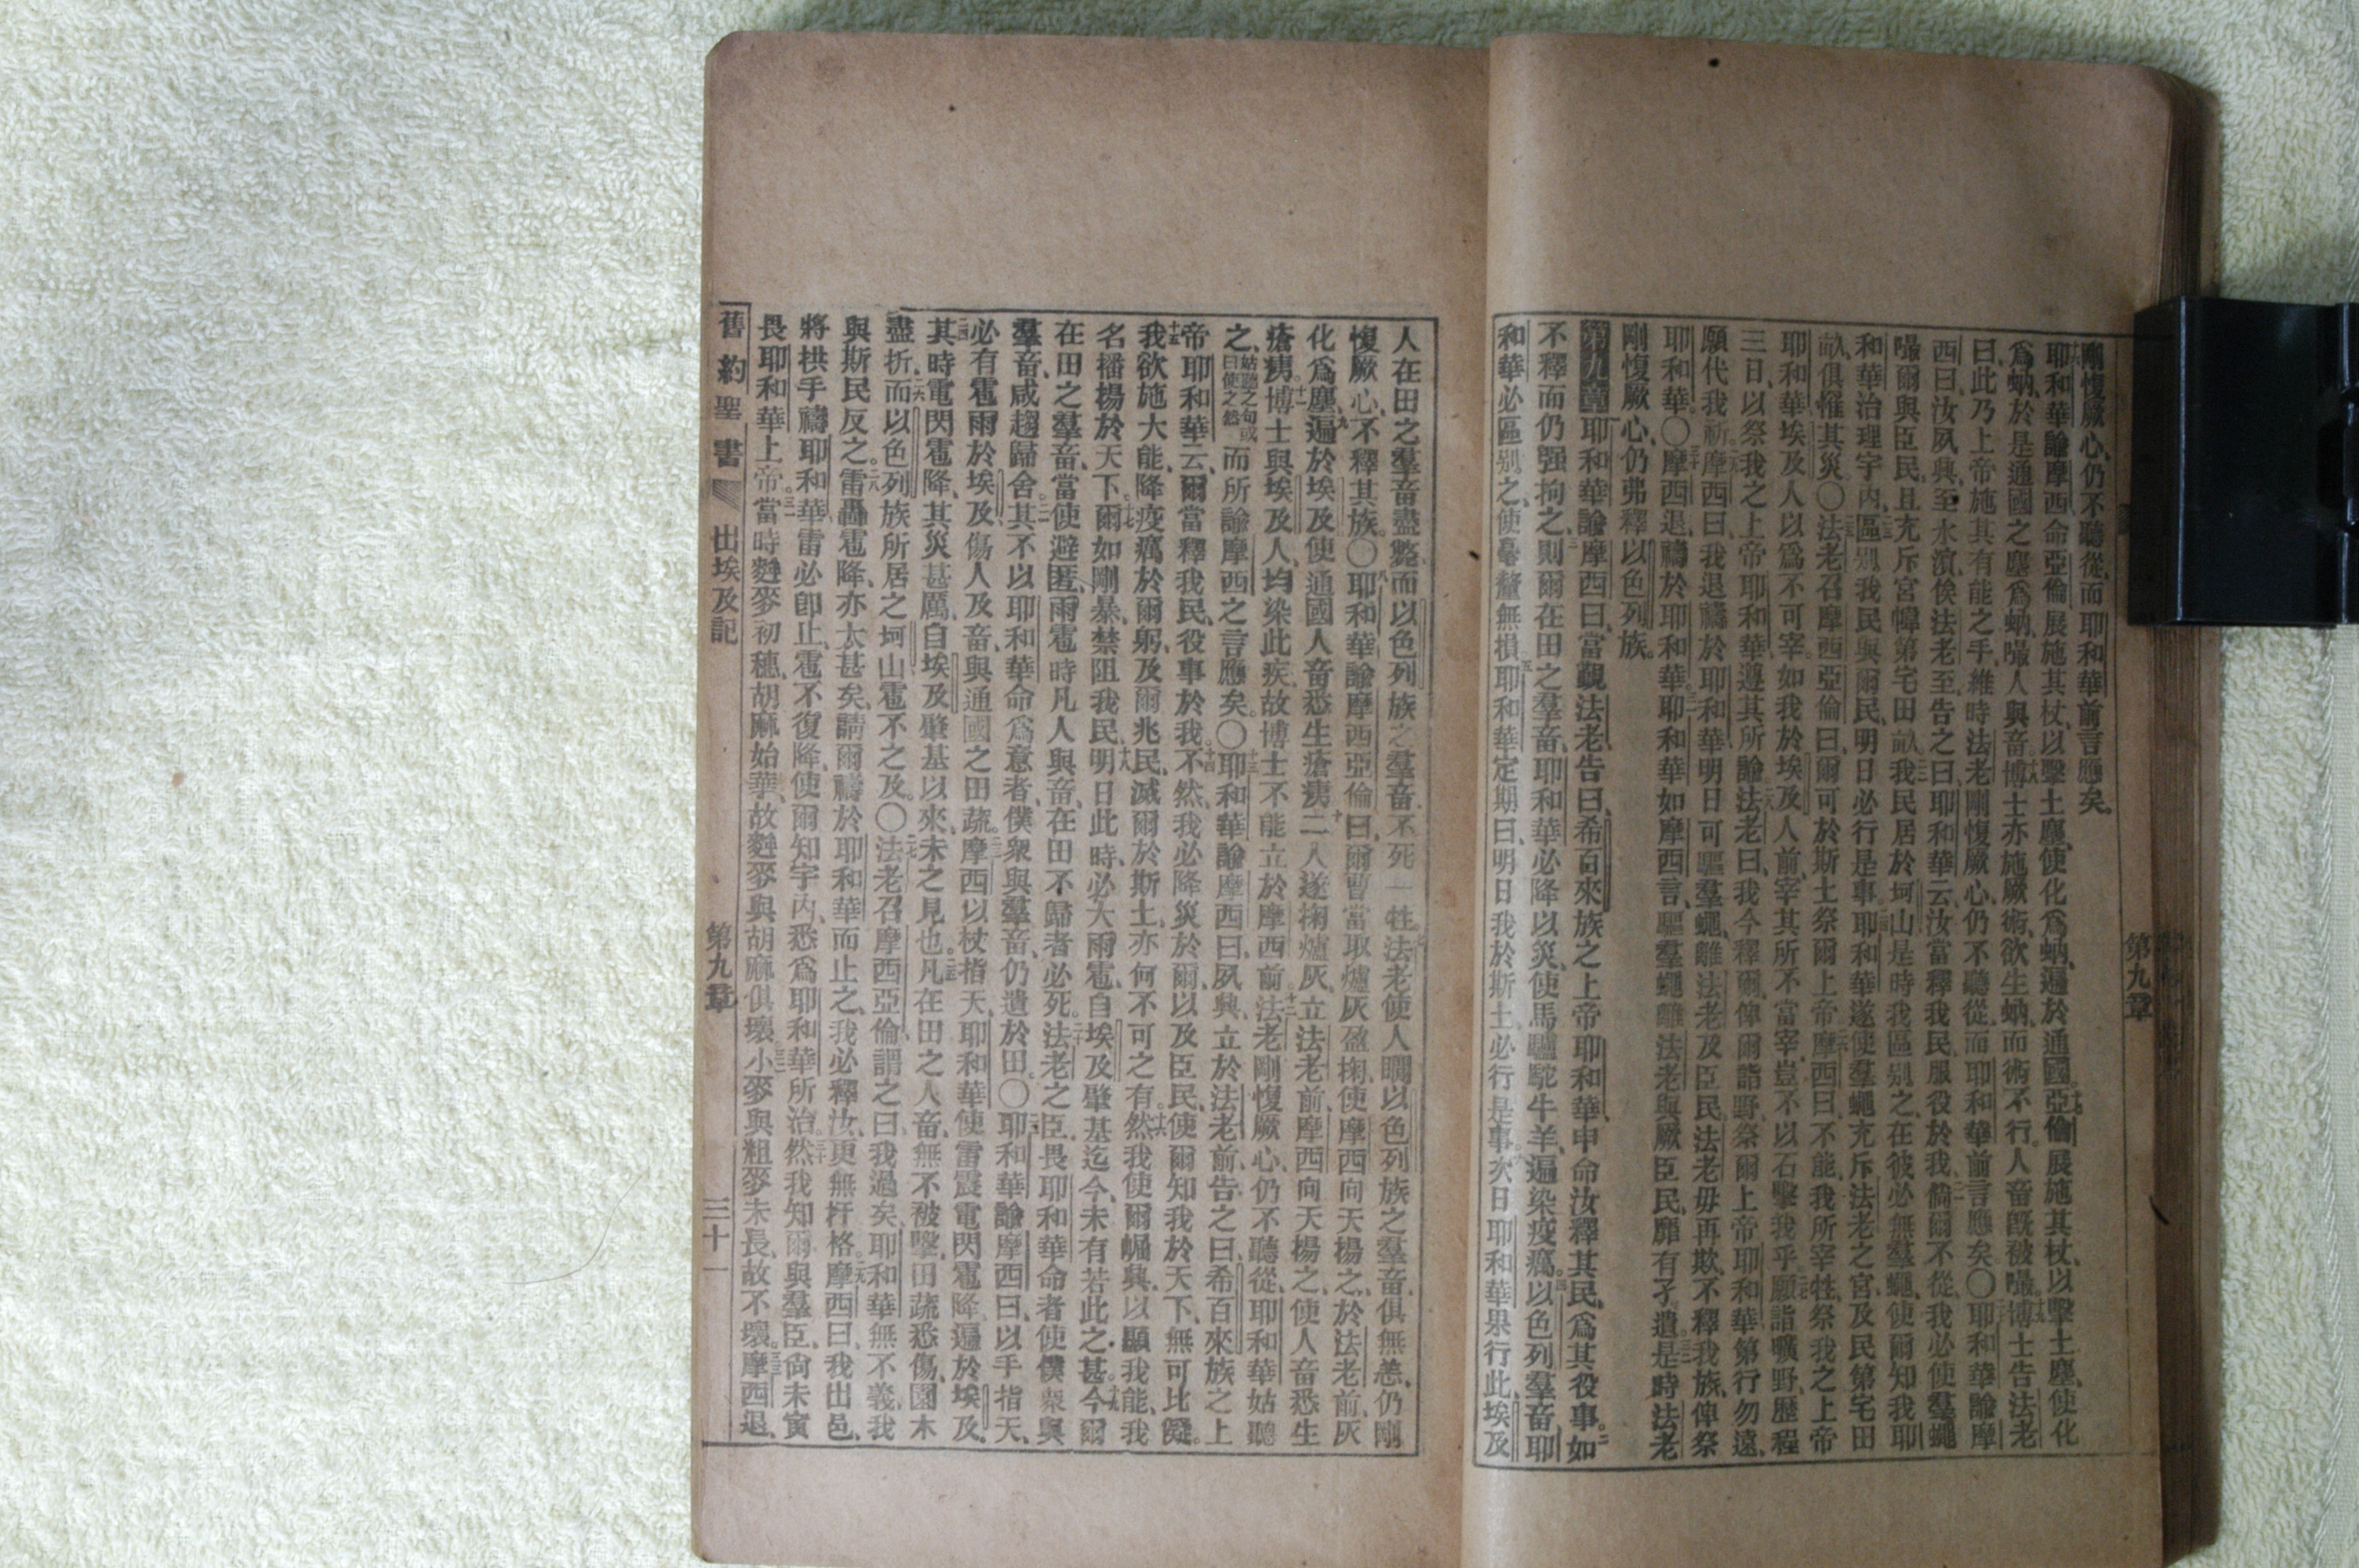 剛愎厥心、仍不聽從、而耶和華前言應矣。
耶和華諭摩西、命亞倫展施其杖、以擊土塵、使化爲蚋、遍於通國。亞倫展施其杖、以擊土塵、使化
爲蚋、於是通國之塵爲蚋、嘬人與畜。博士亦施厥術、欲生蚋、而術不行。人畜旣被嘬。博士告法老
曰、此乃上帝施其有能之手、維時法老剛愎厥心、仍不聽從、而耶和華前言應矣。〇耶和華諭摩
西曰、汝夙興、至水濱、俟法老至、告之曰、耶和華云、汝當釋我民、服役於我、倘爾不從、我必使羣蠅
嘬爾與臣民、且充斥宮幃第宅田畝。我民居於坷山、是時我區別之、在彼必無羣蠅、使爾知我耶
和華治理宇內、區別我民與爾民、明日必行是事。耶和華遂使羣蠅充斥法老之宮、及民第宅田
畝、俱罹其災。〇法老召摩西亞倫曰、爾可於斯土祭爾上帝。摩西曰、不能、我所宰牲祭我之上帝
耶和華、埃及人以爲不可宰、如我於埃及人前、宰其所不當宰、豈不以石擊我乎。願詣曠野、歷程
三日、以祭我之上帝耶和華、遵其所諭。法老曰、我今釋爾、俾爾詣野、祭爾上帝耶和華、第行勿遠、
願代我祈。摩西曰、我退禱於耶和華、明日可驅羣蠅、離法老及臣民、法老毋再欺、不釋我族、俾祭
耶和華。〇摩西退、禱於耶和華。耶和華如摩西言、驅羣蠅離法老與厥臣民、靡有孑遺。是時法老
剛愎厥心、仍弗釋以色列族。
第九章 耶和華諭摩西曰、當覲法老、告曰、希百來族之上帝耶和華、申命汝釋其民、爲其役事。如
不釋、而仍强拘之、則爾在田之羣畜、耶和華必降以災、使馬驢駝牛羊、遍染疫癘。以色列羣畜、耶
和華必區別之、使毫釐無損、耶和華定期曰、明日我於斯土必行是事。次日耶和華果行此、埃及
人在田之羣畜盡斃、而以色列族之羣畜、不死一牲。法老使人矙以色列族之羣畜、俱無恙、仍剛
愎厥心、不釋其族。〇耶和華諭摩西亞倫曰、爾曹當取爐灰盈掬、使摩西向天揚之、於法老前、灰
化爲塵、遍於埃及、使通國人畜悉生瘡痍。二人遂掬爐灰、立法老前、摩西向天揚之、使人畜悉生
瘡痍。博士與埃及人、均染此疾、故博士不能立於摩西前。法老剛愎厥心、仍不聽從、耶和華姑聽
之、姑聽之句或曰使之然而所諭摩西之言應矣。〇耶和華諭摩西曰、夙興、立於法老前、告之曰、希百來族之上
帝耶和華云、爾當釋我民、役事於我。不然、我必降災於爾、以及臣民、使爾知我於天下、無可比儗。
我欲施大能、降疫癘於爾躬、及爾兆民、滅爾於斯土、亦何不可之有。然我使爾崛興、以顯我能、我
名播揚於天下。爾如剛暴、禁阻我民、明日此時、必大雨雹、自埃及肇基迄今、未有若此之甚。今爾
在田之羣畜、當使避匿、雨雹時、凡人與畜、在田不歸者必死。法老之臣、畏耶和華命者、使僕衆與
羣畜、咸趨歸舍。其不以耶和華命爲意者、僕衆與羣畜、仍遺於田。〇耶和華諭摩西曰、以手指天、
必有雹雨於埃及、傷人及畜、與通國之田蔬。摩西以杖指天、耶和華使雷震電閃雹降、遍於埃及。
其時電閃雹降、其災甚厲、自埃及肇基以來、未之見也。凡在田之人畜、無不被擊、田蔬悉傷、園木
盡折、而以色列族所居之坷山、雹不之及。〇法老召摩西亞倫、謂之曰、我過矣、耶和華無不義、我
與斯民反之。雷轟雹降、亦太甚矣、請爾禱於耶和華而止之、我必釋汝、更無扞格。摩西曰、我出邑、
將拱手禱耶和華、雷必卽止、雹不復降、使爾知宇內、悉爲耶和華所治。然我知爾與羣臣、尙未寅
畏耶和華上帝。當時麰麥初穗、胡麻始華、故麰麥與胡麻俱壞。小麥與粗麥未長、故不壞。摩西退、
舊約聖書 出埃及記 第九章 三十一
第九章